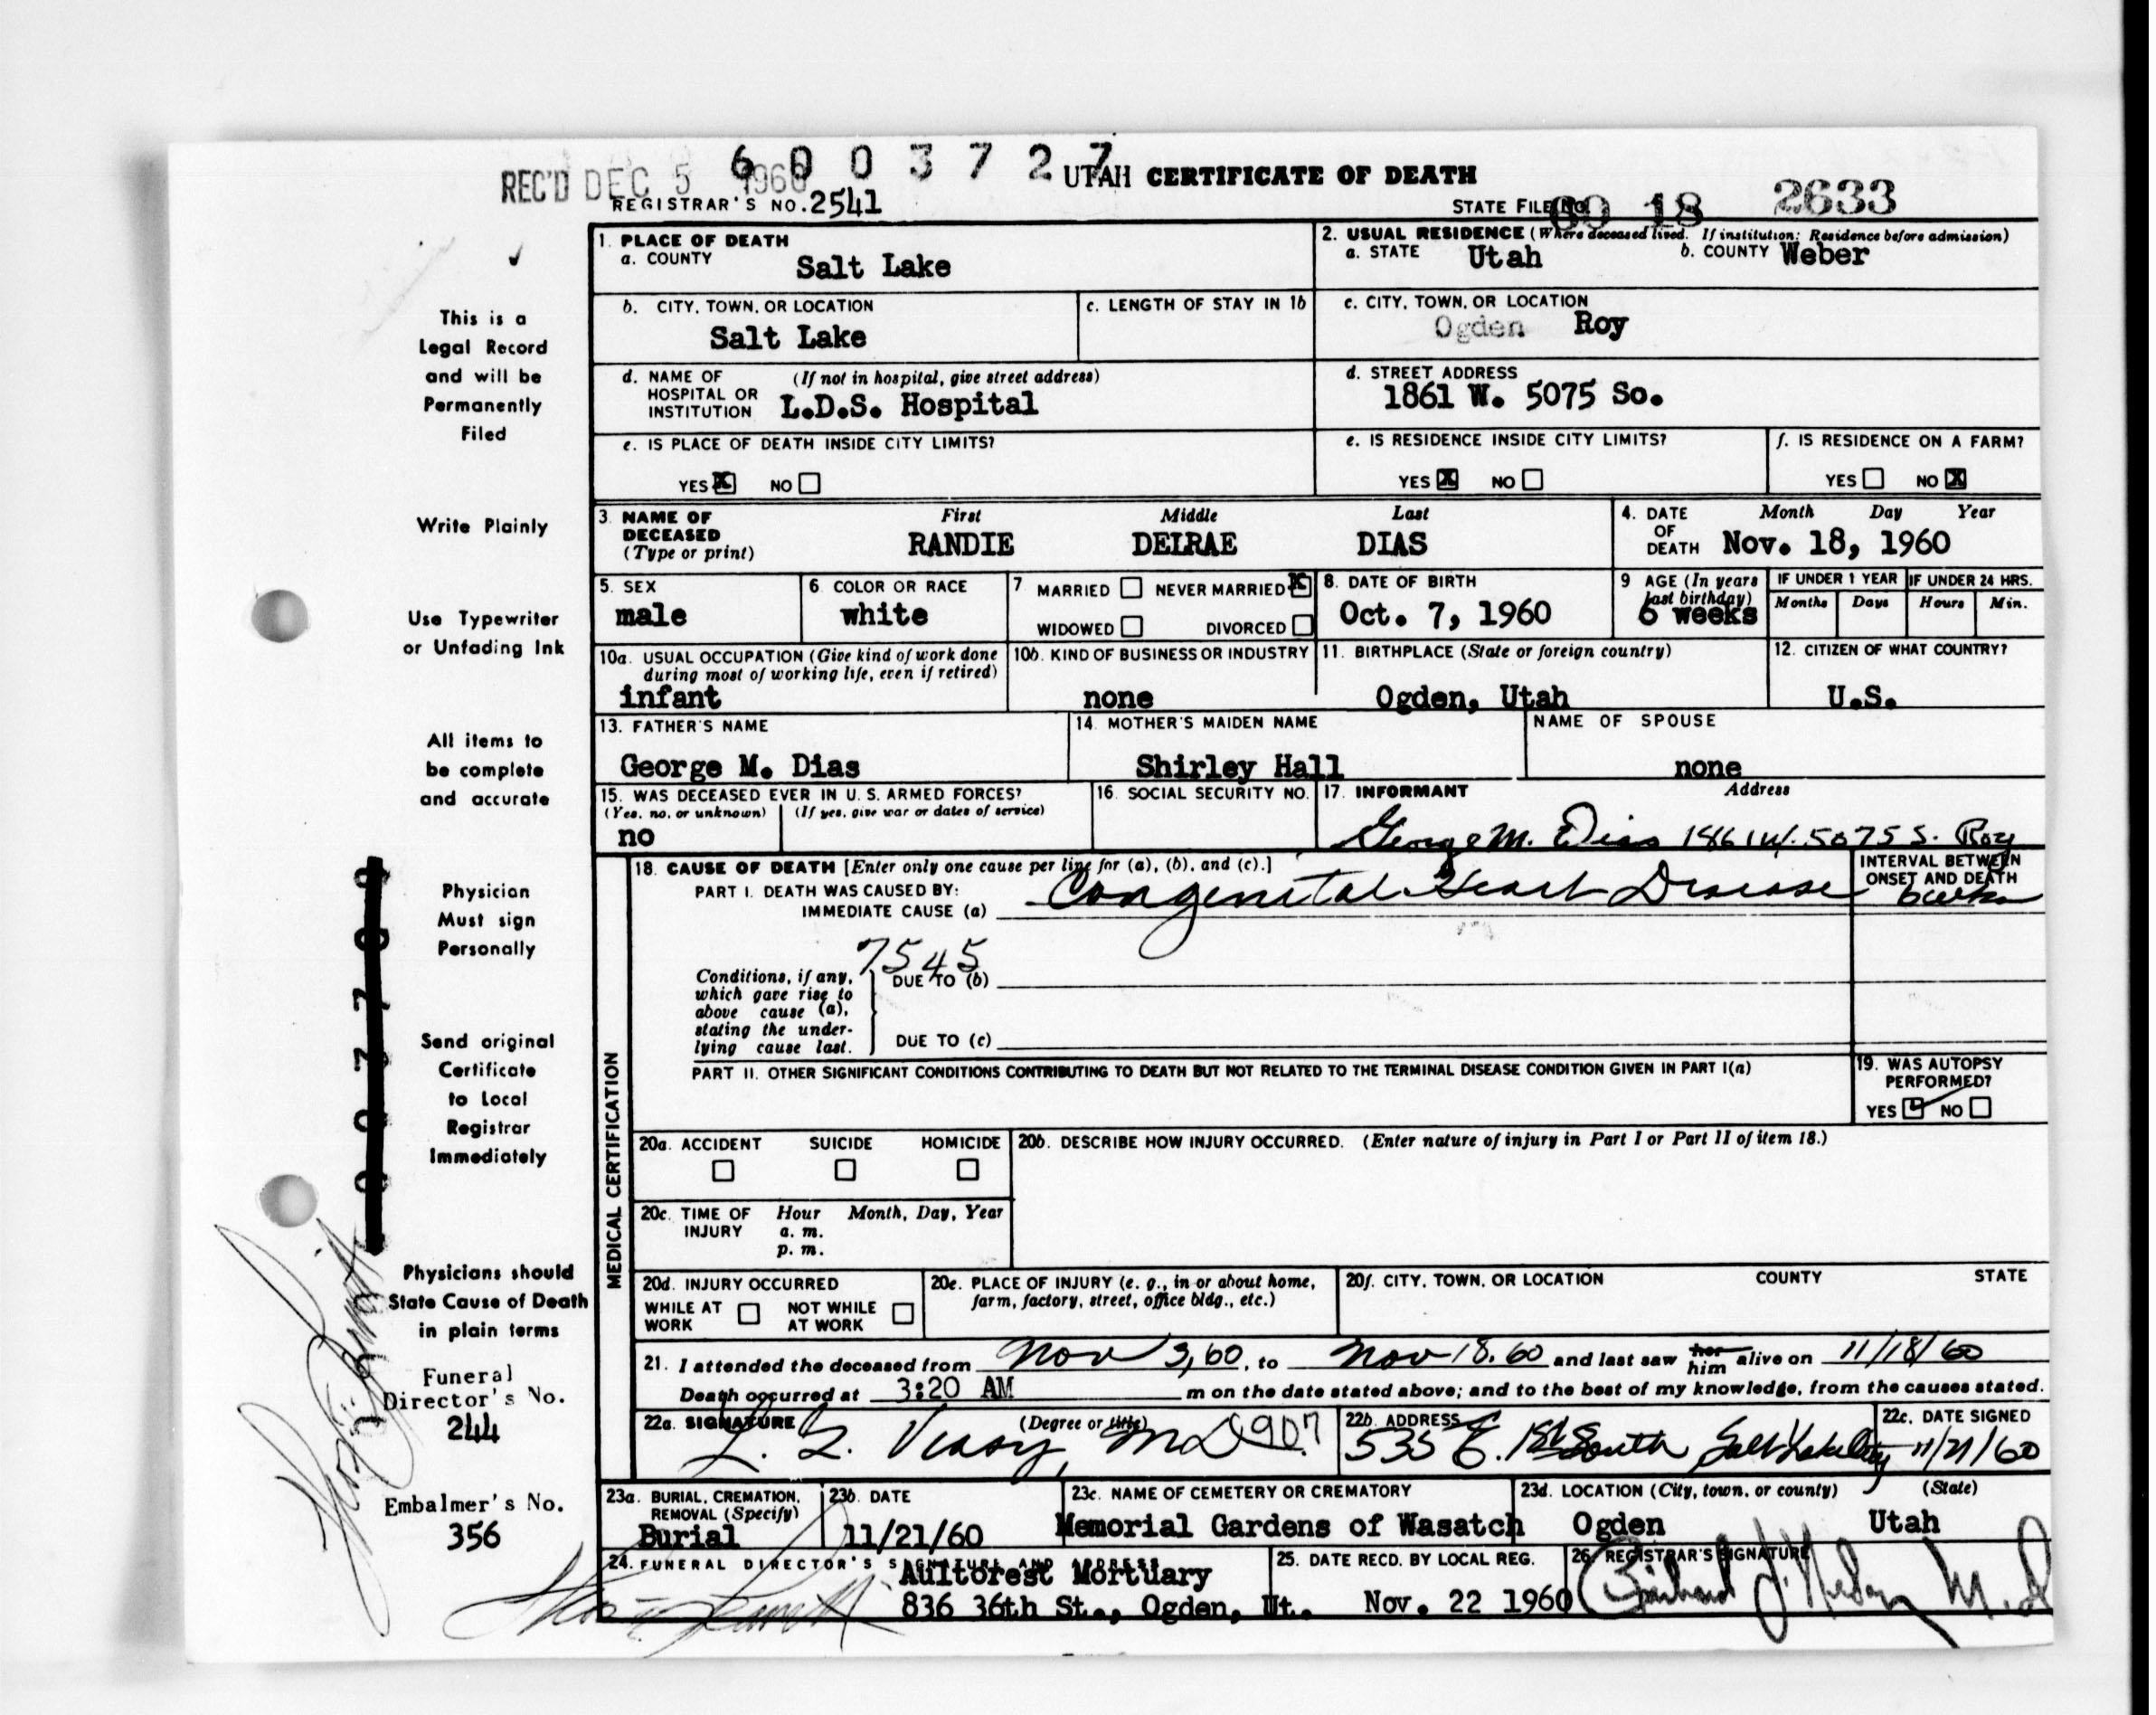 6003727
REC'D DEC 5 1960
UTAH CERTIFICATE OF DEATH
REGISTRAR'S NO. 2541
STATE FILE NO. 60 18 2633
✓
This is a
Legal Record
and will be
Permanently
Filed
Write Plainly
Use Typewriter
or Unfading Ink
All items to
be complete
and accurate
Physician
Must sign
Personally
Send original
Certificate
to Local
Registrar
Immediately
Physicians should
State Cause of Death
in plain terms
Funeral
Director's No.
244
Embalmer's No.
356
1. PLACE OF DEATH
a. COUNTY Salt Lake
2. USUAL RESIDENCE (Where deceased lived. If institution: Residence before admission)
a. STATE Utah b. COUNTY Weber
b. CITY, TOWN, OR LOCATION
Salt Lake
c. LENGTH OF STAY IN 1b
c. CITY, TOWN, OR LOCATION
Ogden Roy
d. NAME OF HOSPITAL OR INSTITUTION (If not in hospital, give street address)
L.D.S. Hospital
d. STREET ADDRESS
1861 W. 5075 So.
e. IS PLACE OF DEATH INSIDE CITY LIMITS?
YES X NO
e. IS RESIDENCE INSIDE CITY LIMITS?
YES X NO
f. IS RESIDENCE ON A FARM?
YES NO X
3. NAME OF DECEASED (Type or print)
First Middle Last
RANDIE DELRAE DIAS
4. DATE OF DEATH Month Day Year
Nov. 18, 1960
5. SEX
male
6. COLOR OR RACE
white
7. MARRIED NEVER MARRIED X
WIDOWED DIVORCED
8. DATE OF BIRTH
Oct. 7, 1960
9 AGE (In years last birthday)
6 weeks
IF UNDER 1 YEAR
Months Days
IF UNDER 24 HRS.
Hours Min.
10a. USUAL OCCUPATION (Give kind of work done during most of working life, even if retired)
infant
10b. KIND OF BUSINESS OR INDUSTRY
none
11. BIRTHPLACE (State or foreign country)
Ogden, Utah
12. CITIZEN OF WHAT COUNTRY?
U.S.
13. FATHER'S NAME
George M. Dias
14. MOTHER'S MAIDEN NAME
Shirley Hall
NAME OF SPOUSE
none
15. WAS DECEASED EVER IN U. S. ARMED FORCES?
(Yes, no, or unknown) (If yes, give war or dates of service)
no
16. SOCIAL SECURITY NO.
17. INFORMANT Address
George M. Dias 1861 W. 5075 S. Roy
MEDICAL CERTIFICATION
18. CAUSE OF DEATH [Enter only one cause per line for (a), (b), and (c).]
PART I. DEATH WAS CAUSED BY:
IMMEDIATE CAUSE (a) Congenital Heart Disease
INTERVAL BETWEEN ONSET AND DEATH
7545
Conditions, if any, which gave rise to above cause (a), stating the underlying cause last.
DUE TO (b)
DUE TO (c)
PART II. OTHER SIGNIFICANT CONDITIONS CONTRIBUTING TO DEATH BUT NOT RELATED TO THE TERMINAL DISEASE CONDITION GIVEN IN PART I(a)
19. WAS AUTOPSY PERFORMED?
YES ✓ NO
20a. ACCIDENT SUICIDE HOMICIDE
20b. DESCRIBE HOW INJURY OCCURRED. (Enter nature of injury in Part I or Part II of item 18.)
20c. TIME OF INJURY Hour Month, Day, Year
a. m.
p. m.
20d. INJURY OCCURRED
WHILE AT WORK NOT WHILE AT WORK
20e. PLACE OF INJURY (e. g., in or about home, farm, factory, street, office bldg., etc.)
20f. CITY, TOWN, OR LOCATION COUNTY STATE
21. I attended the deceased from Nov 3, 60, to Nov 18. 60 and last saw her him alive on 11/18/60
Death occurred at 3:20 AM m on the date stated above; and to the best of my knowledge, from the causes stated.
22a. SIGNATURE (Degree or title)
L. G. Veasy, MD 907
22b. ADDRESS
535 E. 1st South Salt Lake City
22c. DATE SIGNED
11/21/60
23a. BURIAL, CREMATION, REMOVAL (Specify)
Burial
23b. DATE
11/21/60
23c. NAME OF CEMETERY OR CREMATORY
Memorial Gardens of Wasatch
23d. LOCATION (City, town, or county) (State)
Ogden Utah
24. FUNERAL DIRECTOR'S SIGNATURE AND ADDRESS
Aultorest Mortuary
836 36th St., Ogden, Ut.
25. DATE RECD. BY LOCAL REG.
Nov. 22 1960
26. REGISTRAR'S SIGNATURE